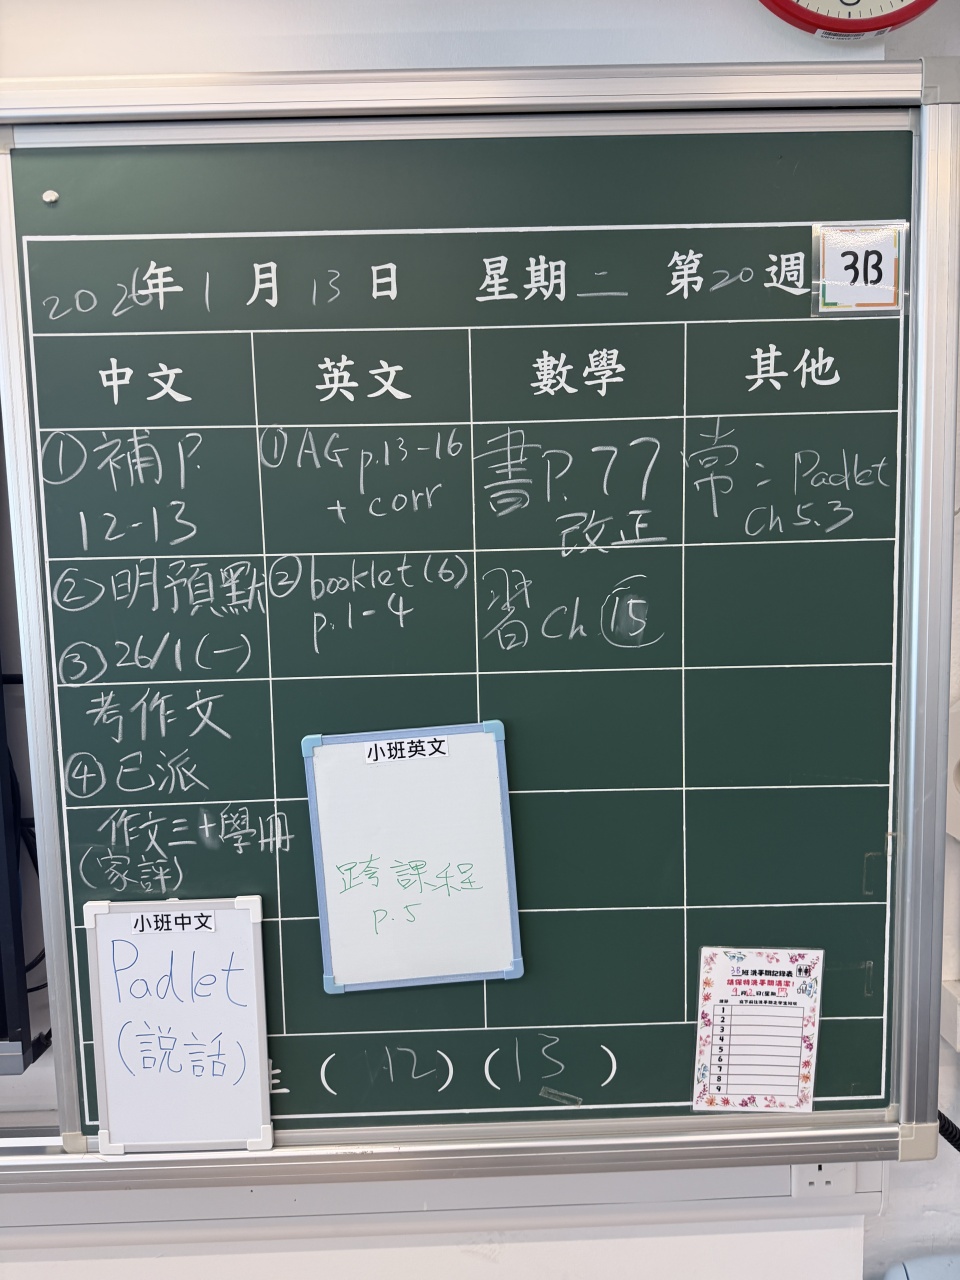 2026年1月13日 星期二 第20週
3B
中文 英文 數學 其他
①補P.
12-13
②明預默
③26/1(一)
考作文
④已派
作文三+學冊
(家評)
①AG p.13-16
+ corr
②booklet(6)
p.1-4
書P.77
改正
習Ch.15
常:Padlet
Ch 5.3
小班英文
跨課程
p.5
小班中文
Padlet
(説話)
生(12)(13)
3B班洗手間記錄表
請保持洗手間清潔!
1
2
3
4
5
6
7
8
9